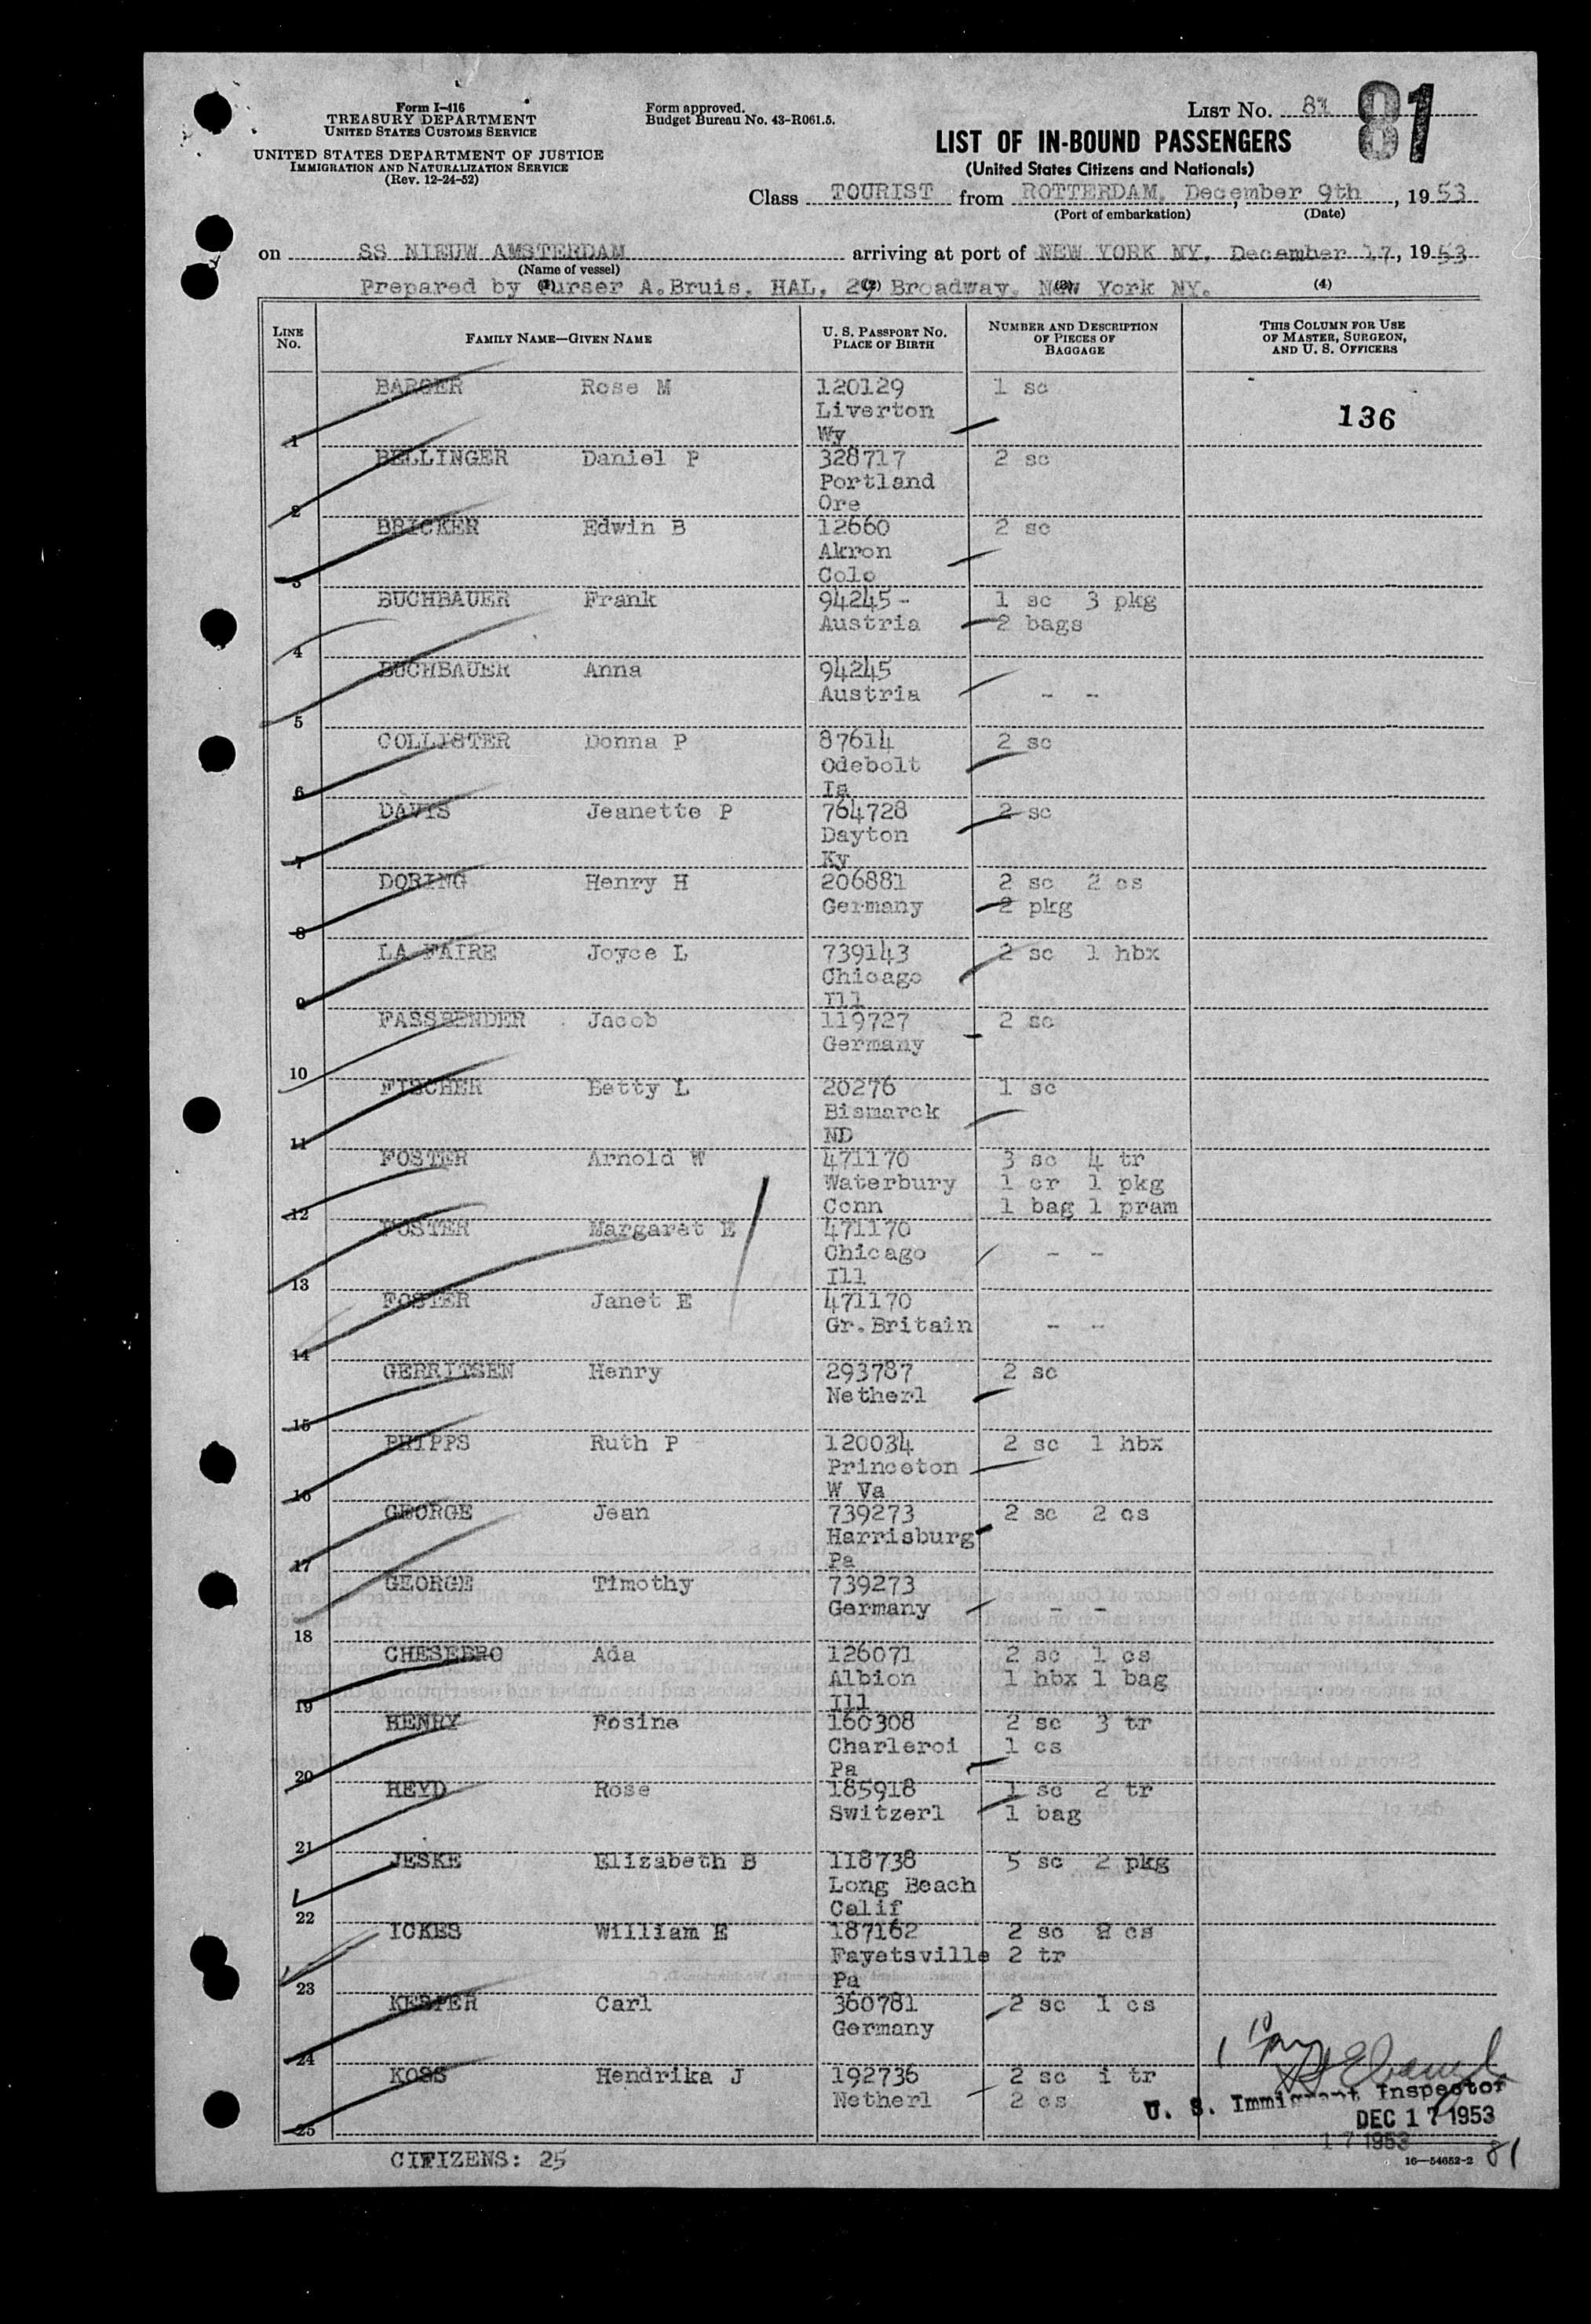 Form I-416
TREASURY DEPARTMENT
UNITED STATES CUSTOMS SERVICE
UNITED STATES DEPARTMENT OF JUSTICE
IMMIGRATION AND NATURALIZATION SERVICE
(Rev. 12-24-52)
Form approved.
Budget Bureau No. 43-R061.5.
LIST NO. 81 81
LIST OF IN-BOUND PASSENGERS
(United States Citizens and Nationals)
Class TOURIST from ROTTERDAM, December 9th, 1953
(Port of embarkation) (Date)
on SS NIEUW AMSTERDAM arriving at port of NEW YORK NY, December 17, 1953
(Name of vessel)
Prepared by Purser A.Bruis, HAL, 29 Broadway, New York NY.
(1) (2) (3) (4)
LINE NO. FAMILY NAME—GIVEN NAME U. S. PASSPORT NO. PLACE OF BIRTH NUMBER AND DESCRIPTION OF PIECES OF BAGGAGE THIS COLUMN FOR USE OF MASTER, SURGEON, AND U. S. OFFICERS
BARGER Rose M 120129 1 sc
Liverton 136
1 Wy
BELLINGER Daniel P 328717 2 sc
Portland
2 Ore
BRICKER Edwin B 12660 2 sc
Akron
3 Colo
BUCHBAUER Frank 94245 - 1 sc 3 pkg
Austria 2 bags
4
BUCHBAUER Anna 94245
Austria - -
5
COLLISTER Donna P 87614 2 sc
Odebolt
6 Ia
DAVIS Jeanette P 764728 2 sc
Dayton
7 Ky
DORING Henry H 206881 2 sc 2 cs
Germany 2 pkg
8
LA FAIRE Joyce L 739143 2 sc 1 hbx
Chicago
9 Ill
FASSBENDER Jacob 119727 2 sc
Germany
10
FISCHER Betty L 20276 1 sc
Bismarck
11 ND
FOSTER Arnold W 471170 3 sc 4 tr
Waterbury 1 cr 1 pkg
12 Conn 1 bag 1 pram
FOSTER Margaret E 471170
Chicago - -
13 Ill
FOSTER Janet E 471170
Gr.Britain - -
14
GERRITSEN Henry 293787 2 sc
Netherl
15
PHIPPS Ruth P 120034 2 sc 1 hbx
Princeton
16 W Va
GEORGE Jean 739273 2 sc 2 cs
Harrisburg
17 Pa
GEORGE Timothy 739273
Germany - -
18
CHESEBRO Ada 126071 2 sc 1 cs
Albion 1 hbx 1 bag
19 Ill
HENRY Rosine 160308 2 sc 3 tr
Charleroi 1 cs
20 Pa
HEYD Rose 185918 1 sc 2 tr
Switzerl 1 bag
21
JESKE Elizabeth B 118738 5 sc 2 pkg
Long Beach
22 Calif
ICKES William E 187162 2 sc 2 cs
Fayetsville 2 tr
23 Pa
KESPER Carl 360781 2 sc 1 cs
Germany
24
KOSS Hendrika J 192736 2 sc 1 tr
Netherl 2 cs
25
U. S. Immigrant Inspector
DEC 17 1953
17 1953
CITIZENS: 25
16—54652-2 81